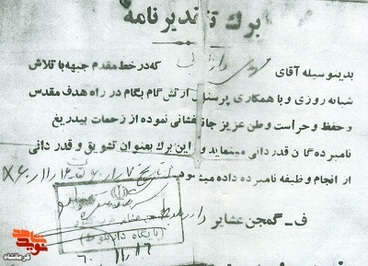 برك تقدیر نامه
بدینوسیله آقای مهدی که در خط مقدم جبهه با تلاش
شبانه روزی و با همکاری پرسنل ارتش گام بگام در راه هدف مقدس
و حفظ و حراست وطن عزیز جانفشانی نموده از زحمات بیدریغ
نامبرده گان قدردانی مینماید و این برك بعنوان تشویق و قدر دانی
از انجام وظیفه نامبرده داده میشود
ف - گمجن عشایر
(پایگاه داربلوط)
۶۰/۱۱/۱۶
نوید
کرمانشاه